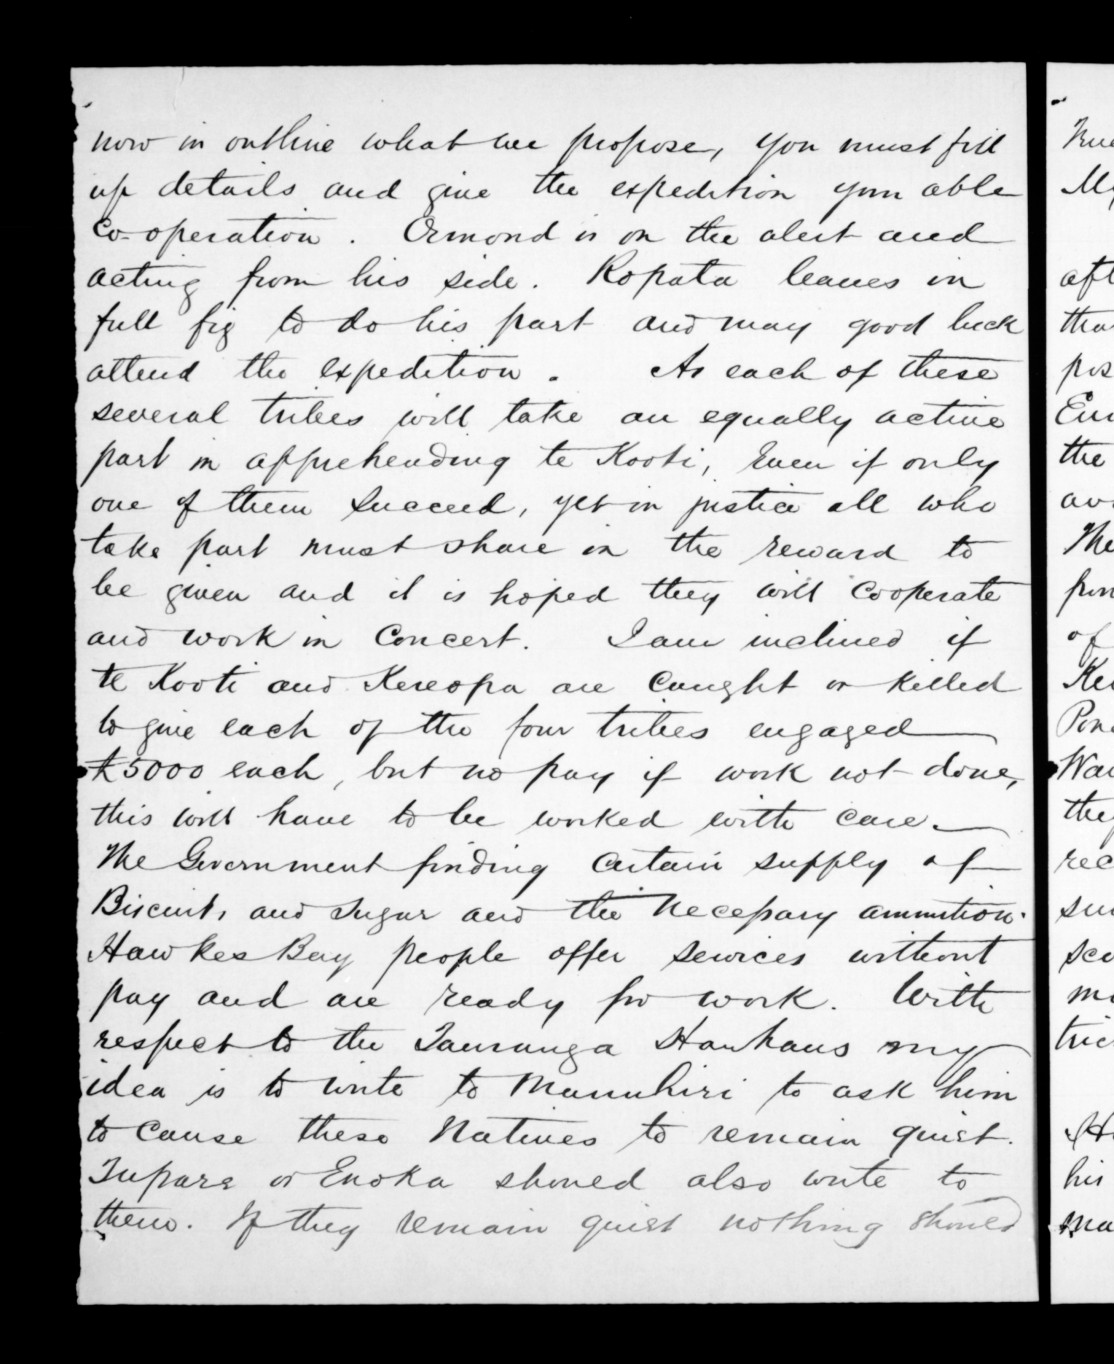 now in outline what we propose, you must fill
up details and give the expedition your able
Co-operation. Ormond is on the alert and
acting from his side. Ropata leaves in
full fig to do his part and may good luck
attend the expedition. As each of these
several tribes will take an equally active
part in apprehending te Kooti, Even if only
one of them Succeed, yet in justice all who
take part must share in the reward to
be given and it is hoped they will Cooperate
and work in Concert. I am inclined if
te Kooti and Kereopa are Caught or killed
to give each of the four tribes engaged
£5000 each, but no pay if work not done,
this will have to be worked with care.
The Government finding Certain supply of
Biscuit, and Sugar and the necessary ammition.
Hawkes Bay people offer services without
pay and are ready for work. With
respect to the Tauranga Hauhaus my
idea is to write to Manuhiri to ask him
to Cause these Natives to remain quiet.
Tupara or Enoka should also write to
them. If they remain quiet nothing should
True
My
aft
that
pos
the
of
Wai
they
rec
his